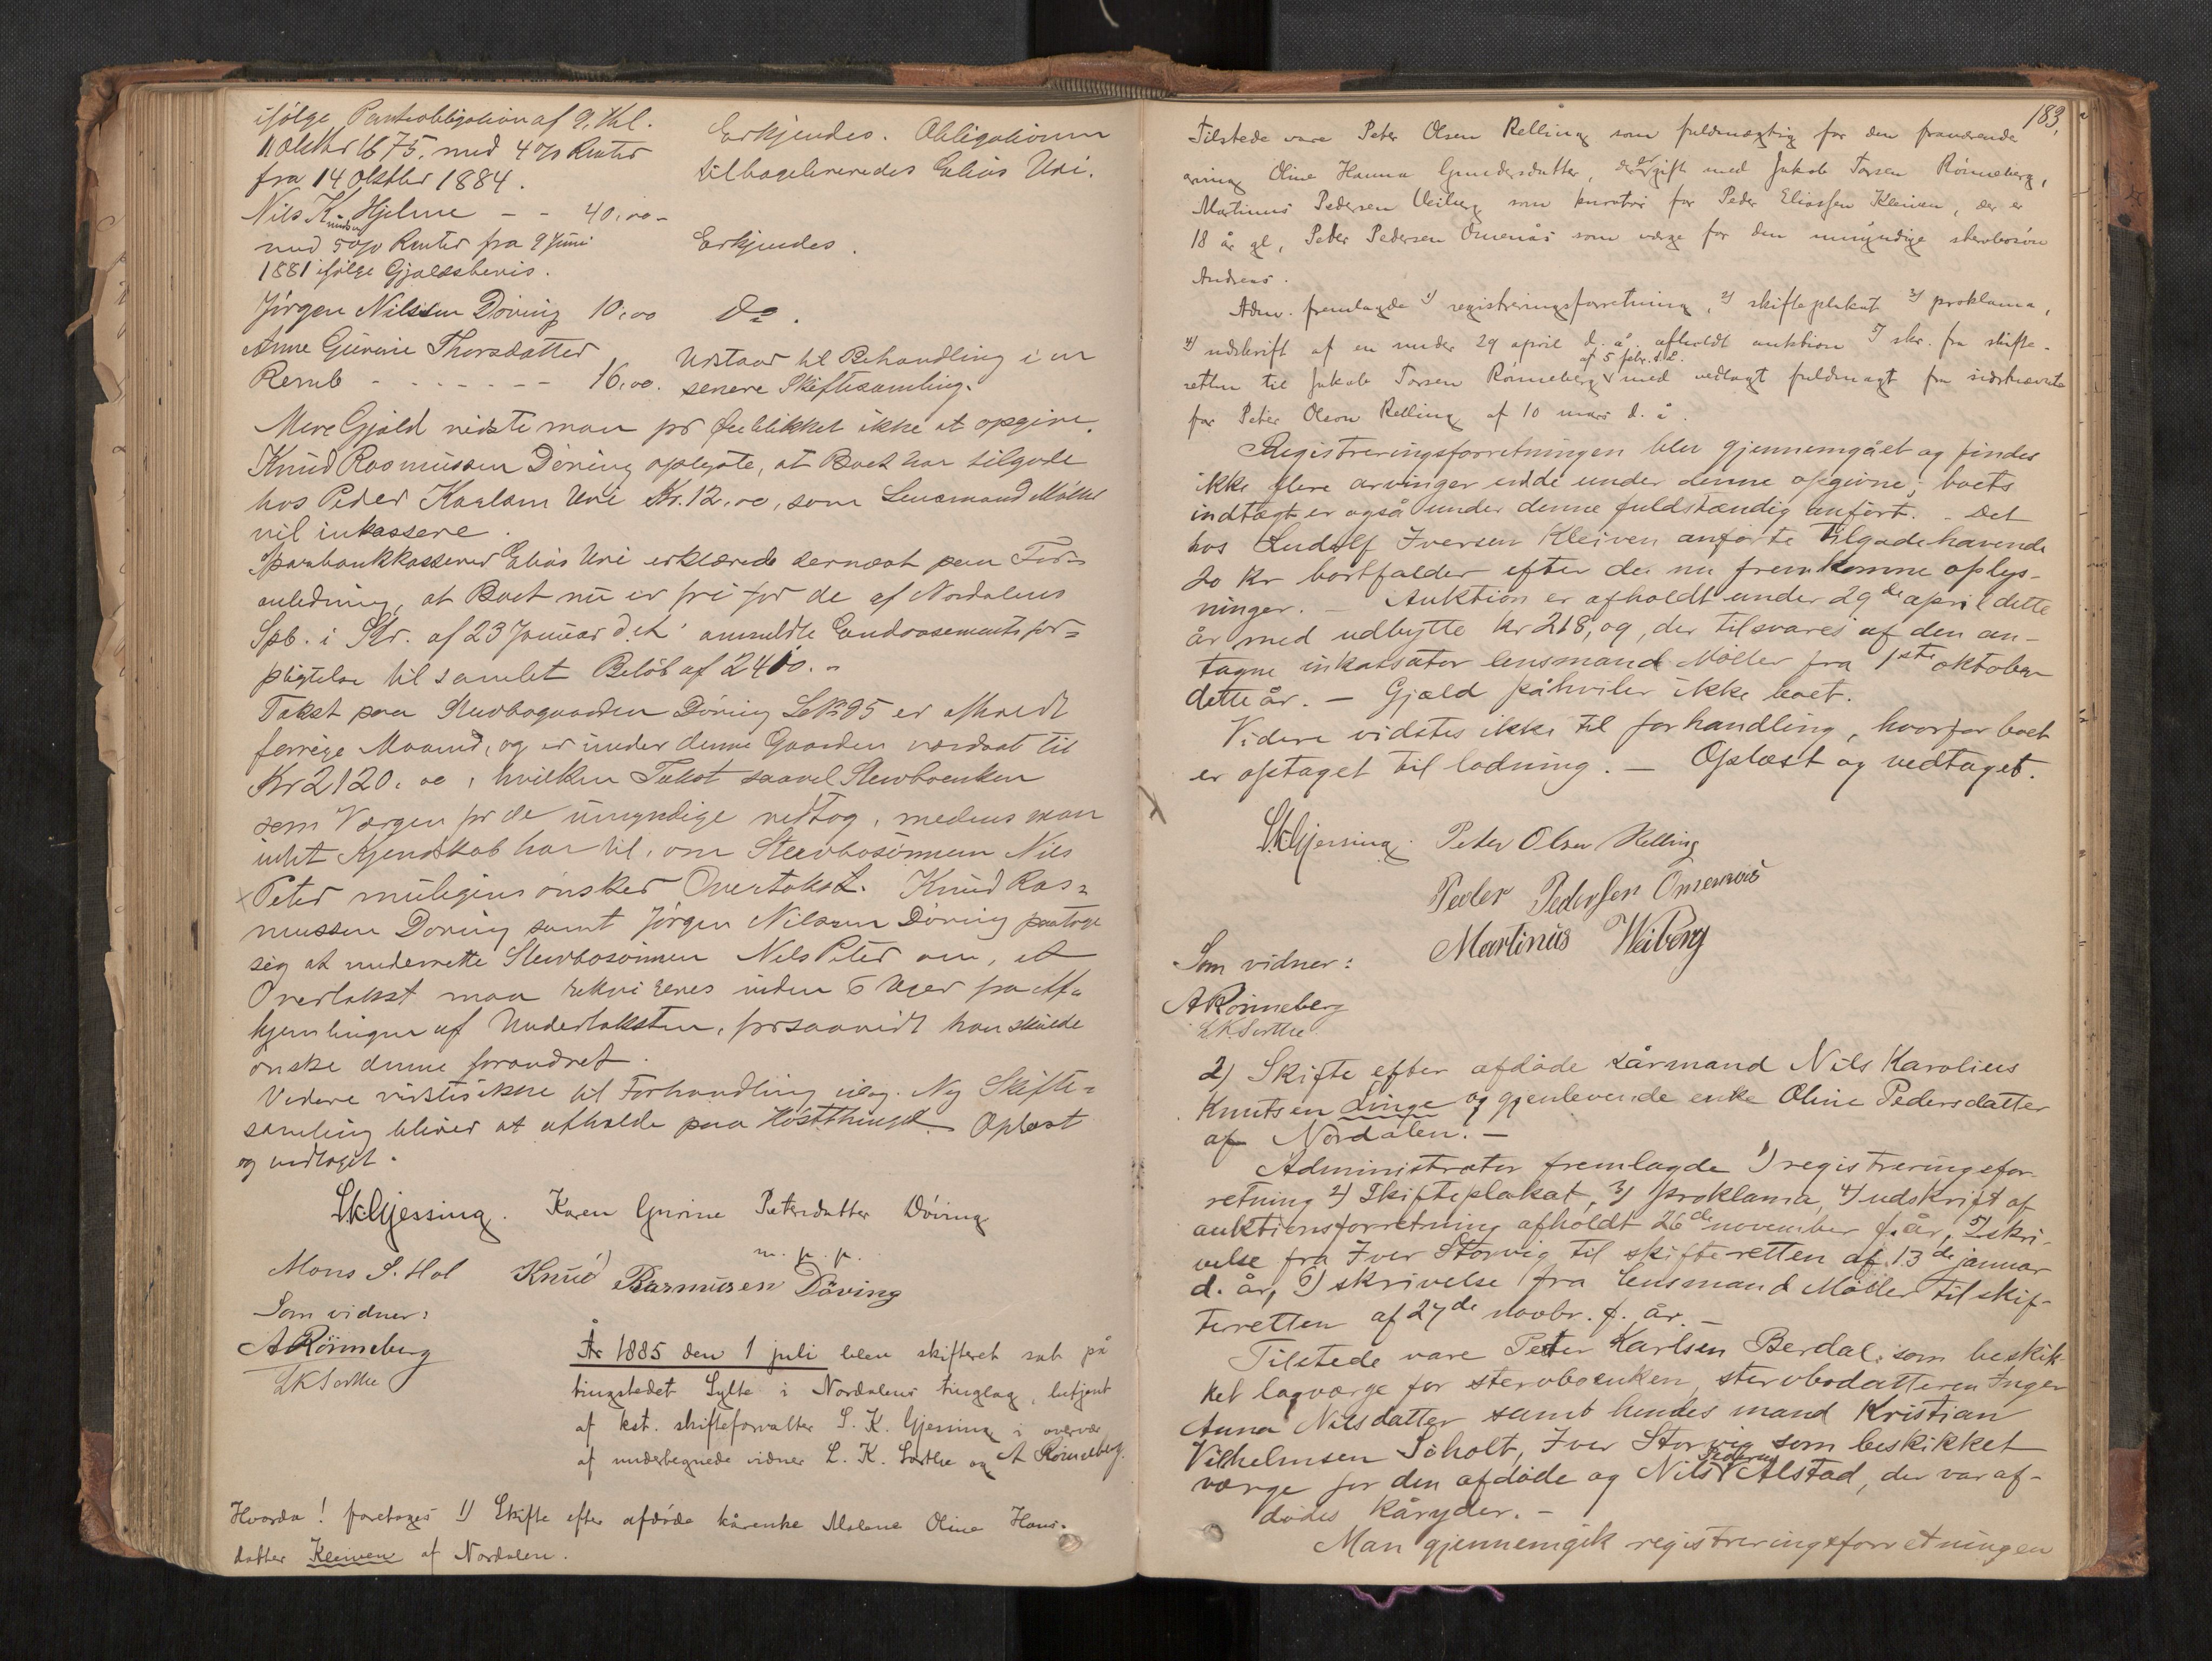 ifølge Panteobligation af 9. Kl.
11 Oktbr 1875. med 4 % Renter
fra 14 Oktbr 1884.
Erkjendes. Obligationen
tilbageleveredes Elias Uri.
Nils Knudsen Hjelme - - 40,00 -
med 5 % Renter fra 9 Juni
1881 ifølge Gjældsbevis.
Erkjendes.
Jørgen Nilssen Döving 10,00 Do.
Anne Gurine Thorsdatter
Remb - - - - - - - 16,00.
Udstaar til Behandling i en
senere Skiftesamling.
Mere Gjæld vidste man for Øieblikket ikke at opgive.
Knud Rasmussen Döving oplyste, at Boet har tilgode
hos Peder Karlsen Uri Kr. 12,00, som Lensmand Möller
vil inkassere.
Sparebankkasserer Elias Uri erklærede dernæst paa For-
anledning, at Boet nu er fri for de af Nordalens
Spb. i Skr. af 23 Januar d. A. anmeldte Endossementsfor-
pligtelse til samlet Belöb af 2410. -
Takst paa Stervbogaarden Döving LNo 95 er afholdt
forrige Maaned, og er under denne Gaarden værdsat til
Kr 2120,00, hvilken Takst saavel Stervboenken
som Værgen for de umyndige vedtog, medens man
intet Kjendskab har til, om Stervbosönnen Nils
Peter muligens önsker Overtakst. Knud Ras-
mussen Döving samt Jörgen Nilssen Döving paatoge
sig at underrette Stervbosönnen Nils Peter om, at
Overtakst maa rekvireres inden 6 Uger fra Af-
hjemlingen af Undertaksten, forsaavidt han skulde
önske denne forandret.
Videre vidstes ikke til Forhandling idag. Ny Skifte-
samling bliver at afholde paa Höstthinget. Oplæst
og vedtaget.
S.K. Gjessing. Karen Gurine Petersdatter Döving
m. p. p.
Mons S. Hol Knud Rasmusen Döving
Som vidner:
A Rönneberg
L K Sorthe
År 1885 den 1 juli blev skifteret sat på
tingstedet Sylte i Nordalens tinglag, betjent
af kst. skifteforvalter S. K. Gjessing i overvær
af undertegnede vidner L. K. Sorthe og A Rönneberg.
Hvorda! foretages 1) Skifte efter afdöde kårenke Malene Oline Hans-
datter Kleiven af Nordalen.
183,
Tilstede vare Peter Olsen Relling som fuldmægtig for den fraværende
arving Oline Hanna Gundersdatter, der er gift med Jakob Torsen Rönneberg,
Martinus Pedersen Veiberg som kurator for Peder Eliassen Kleiven, der er
18 år gl, Peder Pedersen Omenås som værge for den umyndige stervbosön
Andreas.
Adm. fremlagde 1) registreringsforretning, 2) skifteplakat 3) proklama,
4) udskrift af en under 29 april d. å. afholdt auktion 5) skr. fra skifte-
af 5 febr. d. å.
retten til Jakob Torsen Rönneberg med vedlagt fuldmagt fra sidstnævnte
for Peter Olsen Relling af 10 mars d. å.
Registreringsforretningen blev gjennemgået og findes
ikke flere arvinger end de under denne opgivne; boets
indtægt er også under denne fuldstændig anfört. - Det
hos Ludolf Iversen Kleiven anförte tilgodehavende
20 kr bortfalder efter de nu fremkomne oplys-
ninger. - Auktion er afholdt under 29de april dette
år med udbytte kr 218,09, der tilsvares af den an-
tagne inkassator lensmand Möller fra 1ste oktober
dette år. - Gjæld påhviler ikke boet.
Videre vidstes ikke til forhandling, hvorfor boet
er optaget til lodning. - Oplæst og vedtaget.
S.K. Gjessing. Peter Olsen Relling
Peder Pedersen Omenaas
Martinus Weiberg
Som vidner:
A Rönneberg
L K Sorthe
2) Skifte efter afdöde kårmand Nils Karolius
Knutsen Linge og gjenlevende enke Oline Pedersdatter
af Nordalen. -
Administrator fremlagde 1) registreringsfor-
retning 2) Skifteplakat, 3) proklama, 4) udskrift af
auktionsforretning afholdt 26de november f. år, 5) skri-
velse fra Iver Storvig til skifteretten af 13de januar
d. år, 6) skrivelse fra lensmand Möller til skif-
teretten af 27de novbr. f. år. -
Tilstede vare Peter Karlsen Berdal som beskik-
ket lagværge for stervboenken, stervbodatteren Inger
Anna Nilsdatter samt hendes mand Kristian
Vilhelmsen Söholt, Iver Storvig som beskikket
værge for den afdöde og Nils Alstad, der var af-
dödes kåryder. -
Man gjennemgik registreringsforretningen